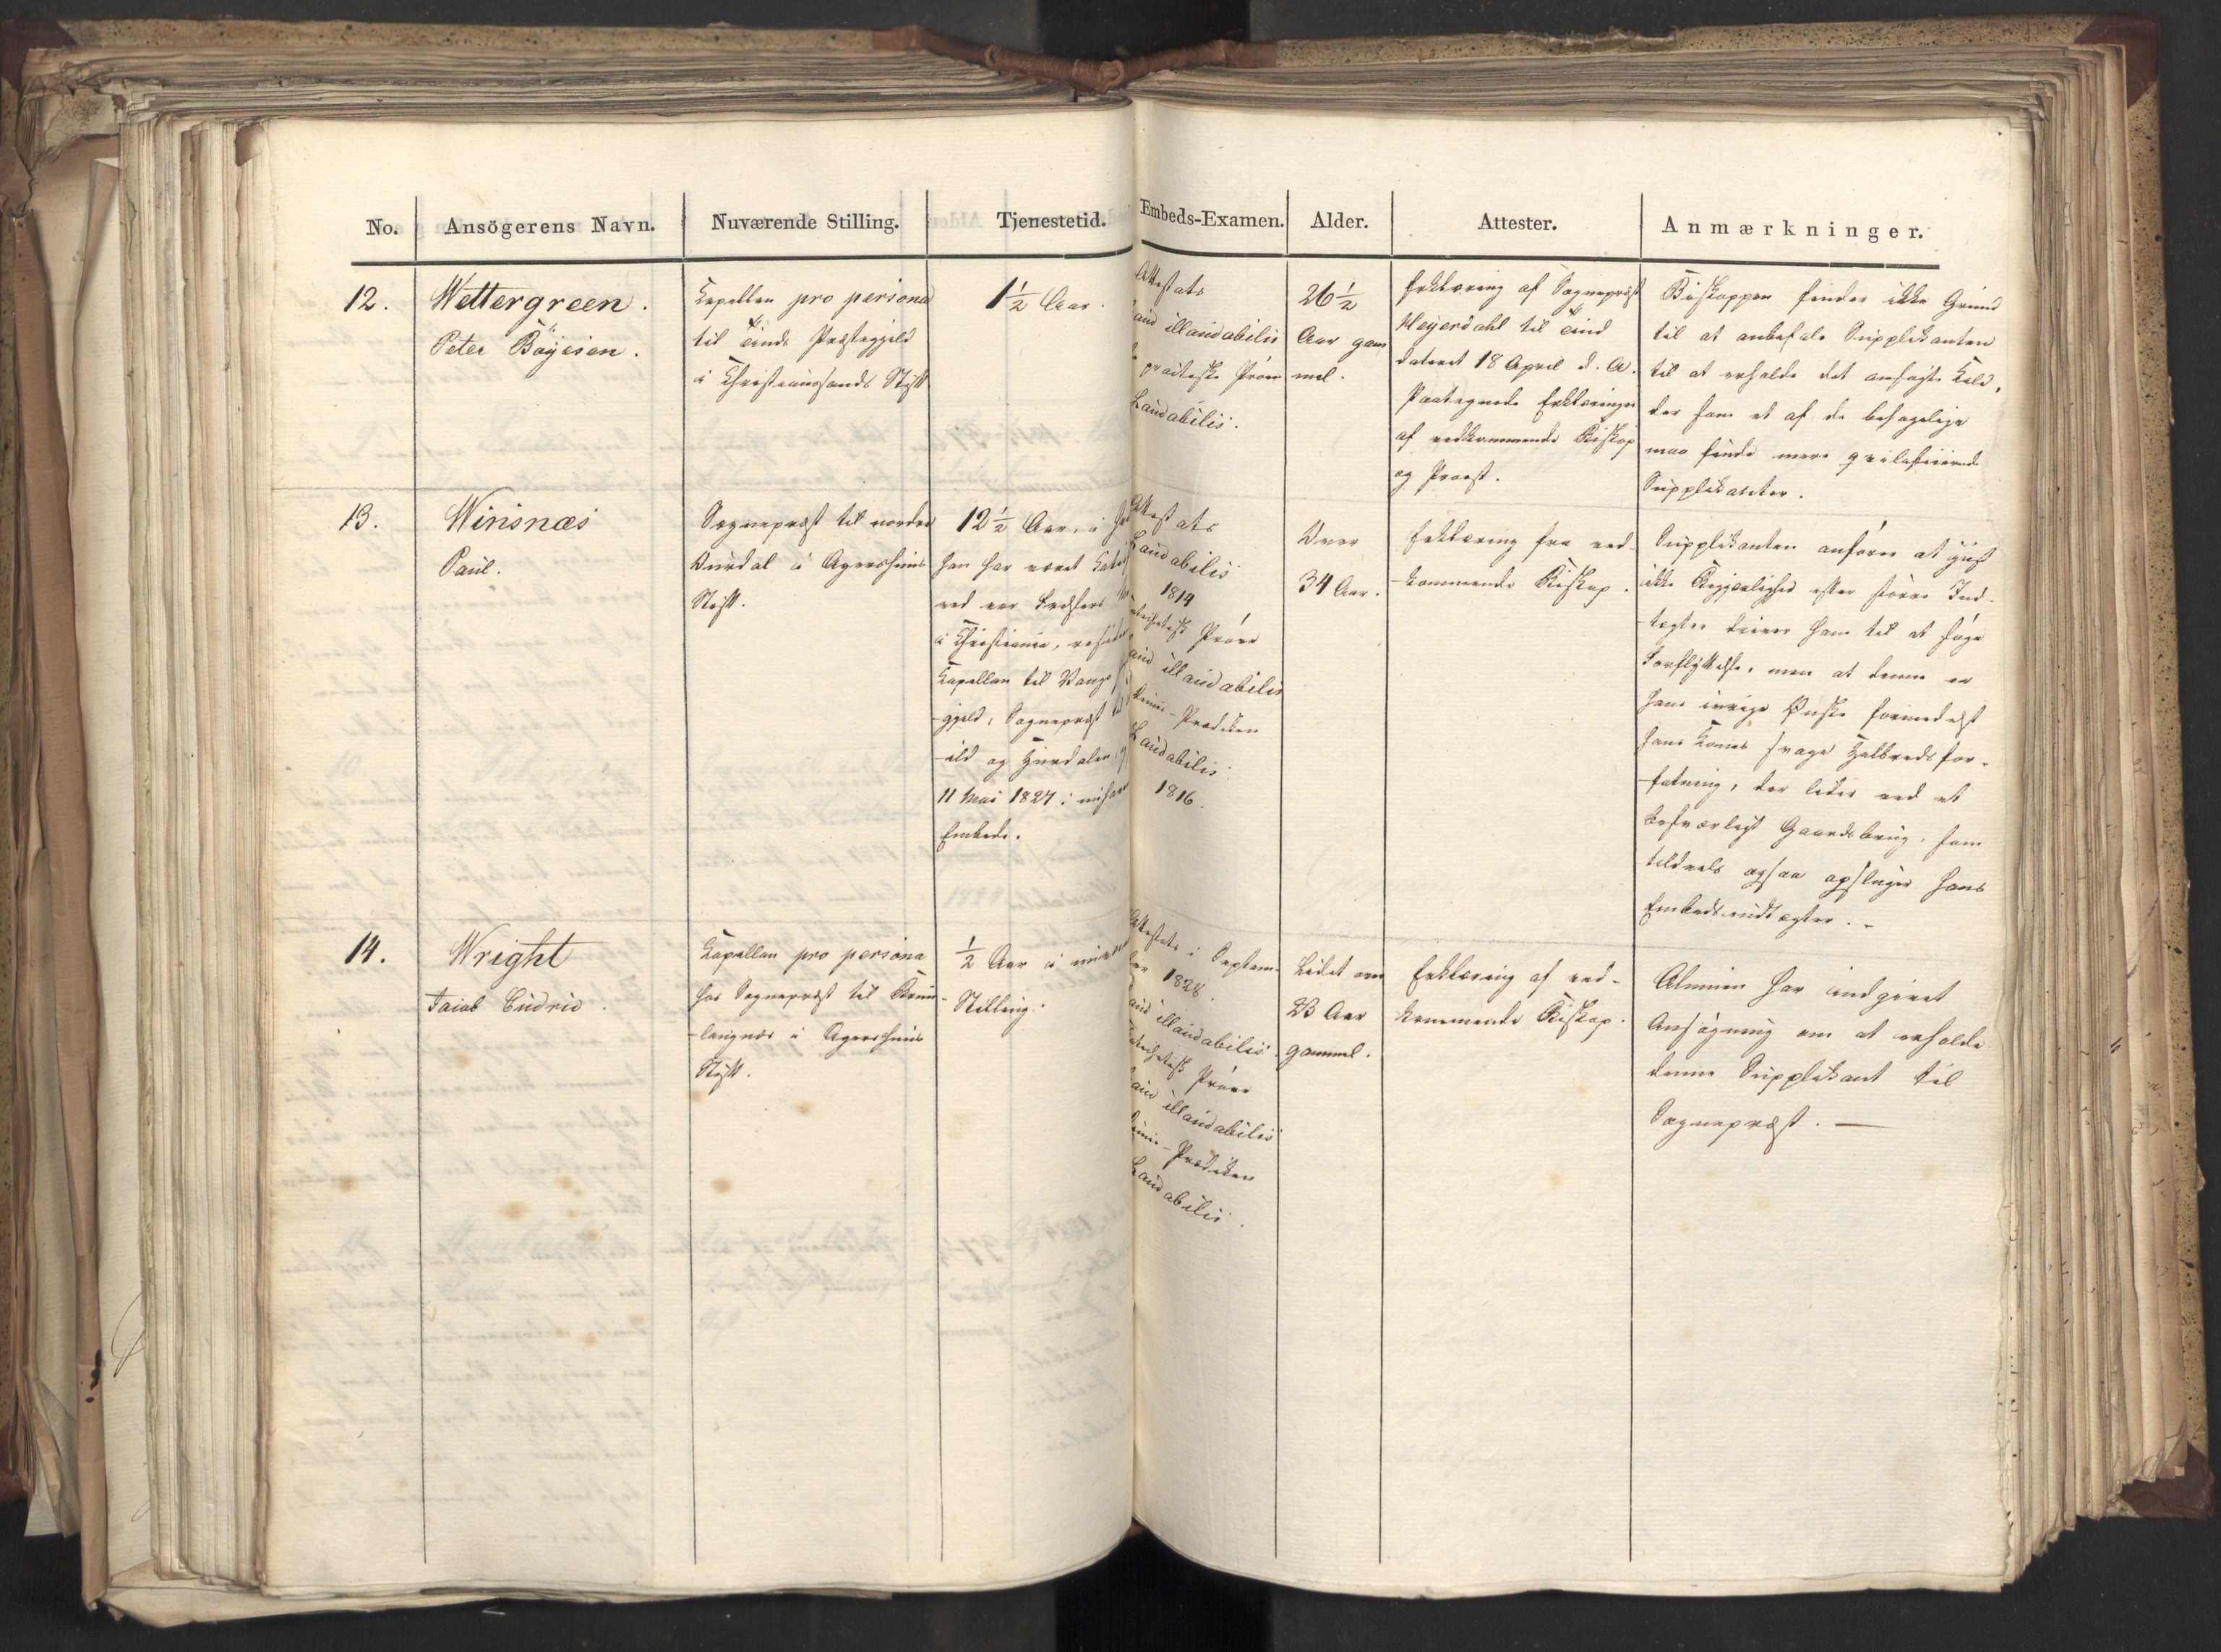 No. Ansögerens Navn. Nuværende Stilling. Tjenestetid. Embeds-Examen. Alder. Attester. Anmærkninger.
12.
Wettergreen.
Peter Böyesen.
Kapellan pro persona
til Eids Præstegjeld
i Christianssands Stift
1½ Aar.
Attestats
haud illaudabilis
practiske Prøve
Laudabilis.
26½
Aar gam
mel.
Erklæring af Sognepræst
Heyerdahl til Eid
dateret 18 April d. A.
Paategnede Erklæringer
af vedkommende Biskop
og Provst.
Biskoppen finder ikke Grund
til at anbefale Supplikanten
til at erholde det ansøgte Kald,
der som et af de behagelige
maa finde mere qvalificerede
Supplikanter.
13.
Winsnæs
Paul.
Sognepræst til nordre
Aurdal i Agershuus
Stift.
12½ Aar, i
han har været
ved vor Frelsers
i Christiania,
Kapellan til Vangs
gjeld, Sognepræst
og Hurdalen,
11 Mai 1827 i
Embede.
Attestats
Laudabilis
1814
Catechetisk Prøve
haud illaudabilis
Dimis-Prædiken
Laudabilis
1816.
Over
34 Aar.
Erklæring fra ved-
kommende Biskop.
Supplikanten anfører at just
ikke Begjærlighed efter større Ind-
tægter driver ham til at søge
Forflyttelse, men at denne er
hans ivrige Ønske formedelst
hans Kones svage Helbreds for-
fatning, der lider ved et
besværligt Gaardsbrug, som
tildeels ogsaa opsluger hans
Embedsindtægter. -
14.
Wright
Jacob Cudrio.
Kapellan pro persona
hos Sognepræst til Brun-
langnæs i Agershuus
Stift.
½ Aar i
Stilling.
Attestats i Septem-
ber 1828.
haud illaudabilis.
Catechetisk Prøve
haud illaudabilis
Dimis-Prædiken
Laudabilis.
Lidet over
23 Aar
gammel.
Erklæring af ved-
kommende Biskop.
Almuen har indgivet
Ansøgning om at erholde
denne Supplikant til
Sognepræst. —